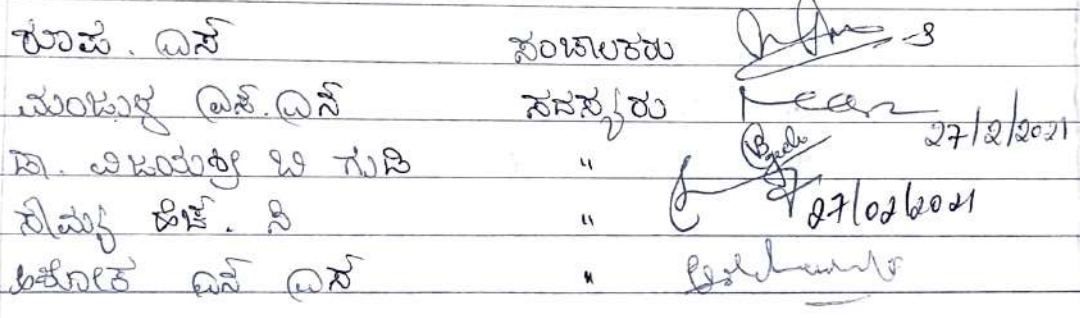 ರೂಪ. ಎಸ್ ಸಂಚಾಲಕರು
ಮಂಜುಳ ಎಸ್.ಎಸ್ ಸದಸ್ಯರು 27/2/2021
ಡಾ. ವಿಜಯಶ್ರೀ ಬಿ ಗುಡಿ "
ಸೌಮ್ಯ ಹೆಚ್. ಸಿ " 27/02/2021
ಅಶೋಕ ಎನ್ ಎಸ್ "